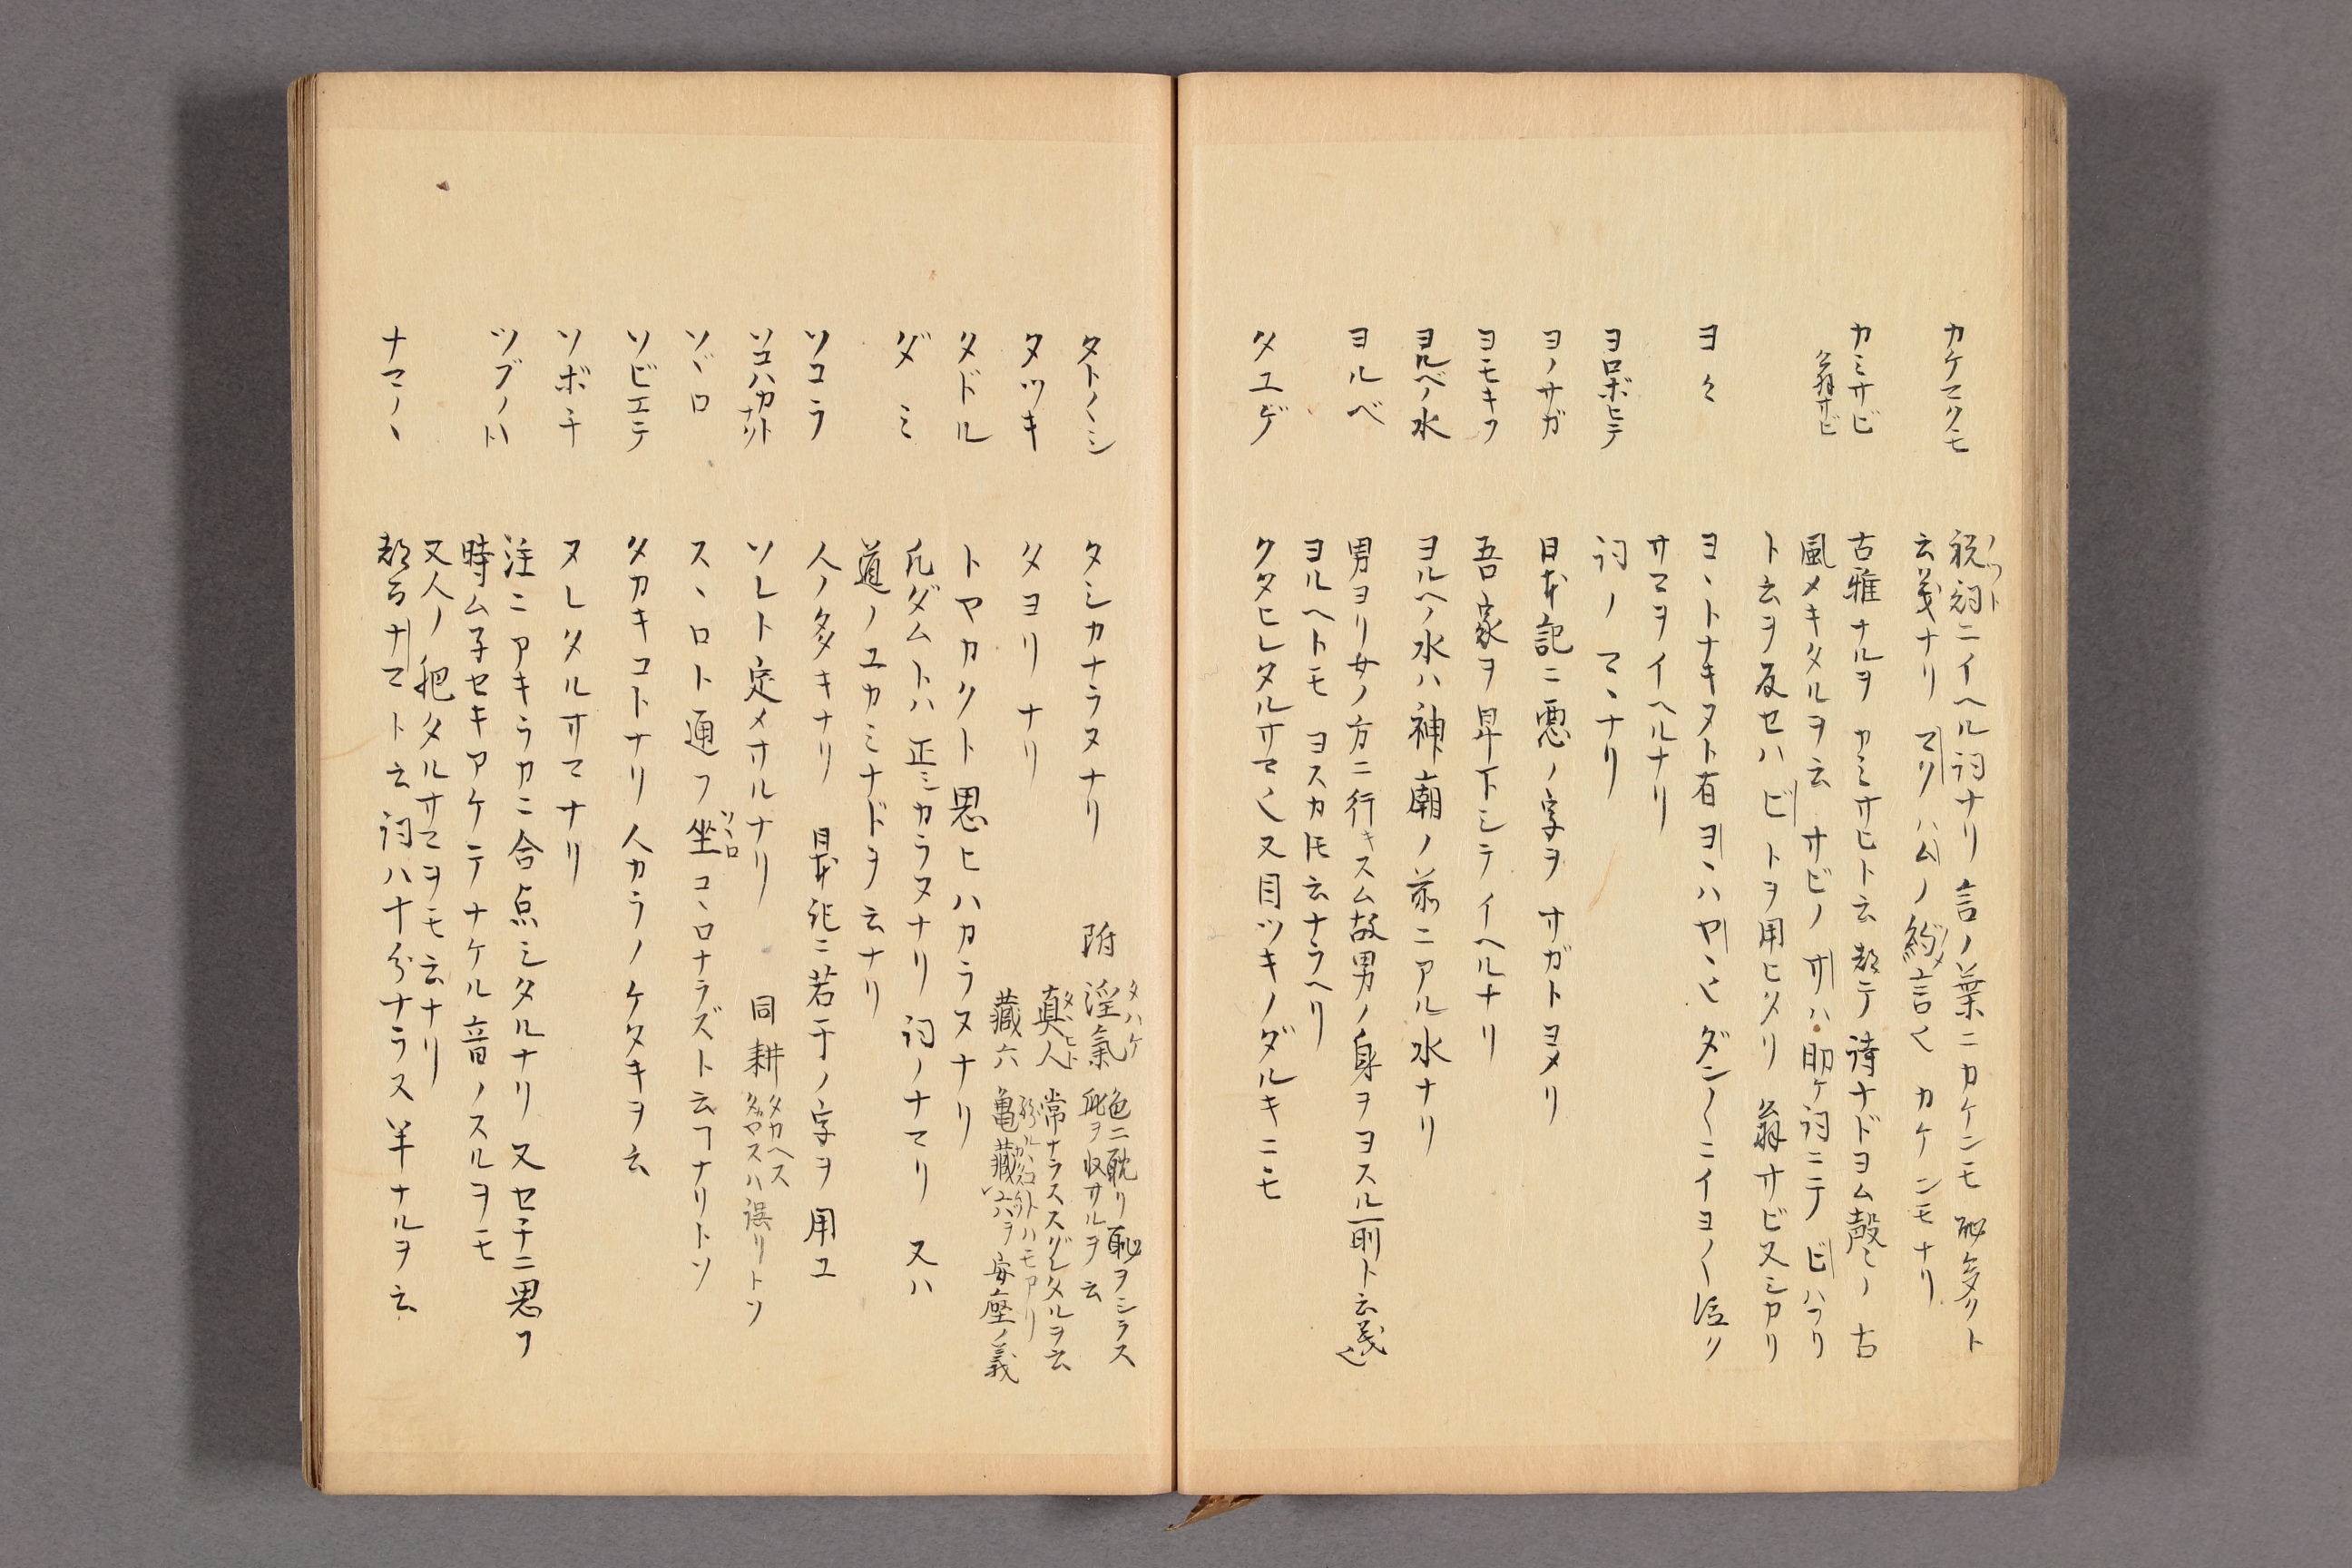 カケマクモ 祝詞ニイヘル詞ナリ 言ノ葉ニカケンモ 恥多クト
ノツト
云義ナリ マクハムノ約言也 カケンモナリ
カミサビ 古雅ナルヲ カミサヒト云 都テ詩ナドヨム聲ミノ 古
翁サビ 風メキタルヲ云 サビノ サハ助ケ詞ニテ ビハフリ
ト云ヲ反セハ ビトヲ用ヒタリ 翁サビ又シカリ
ヨヽ ヨヽトナキヌト有 ヨヽハヤヽ也 ダン〱ニイヨ〱泣ク
サマヲイヘルナリ
ヨロボヒテ 詞ノマヽナリ
ヨノサガ 日本記ニ悪ノ字ヲ サガトヨメリ
ヨモキフ 吾家ヲ卑下シテイヘルナリ
ヨルベノ水 ヨルヘノ水ハ神廟ノ前ニアル水ナリ
ヨルベ 男ヨリ女ノ方ニ行キスム故男ノ身ヲヨスル所ト云義也
ヨルヘトモ ヨスカトモ云ナラヘリ
タユゲ クタヒレタルサマ也 又目ツキノダルキニモ
タト〱シ タシカナラヌナリ
附 淫氣 色ニ耽リ恥ヲシラス
タハケ
此ヲ収サルヲ云
タツキ タヨリナリ
眞人 常ナラススグレタルヲ云
藏六 亀藏六ヲ 安座ノ義
タドル トヤカクト思ヒハカラヌナリ
ダミ 凡ダムトハ正シカラヌナリ 詞ノナマリ 又ハ
道ノユカミナドヲ云ナリ
ソコラ 人ノ多キナリ 日本紀ニ若干ノ字ヲ用ユ
ソコハカトナク ソレト定メサルナリ 同 耕 タカヘス
タガヤスハ誤リトソ
ソヾロ スヽロト通フ 坐 コヽロナラズト云フナリトソ
ソヽロ
ソビエテ タカキコトナリ 人カラノケタキヲ云
ソボチ ヌレタルサマナリ
ツブ〱ト 注ニアキラカニ合点シタルナリ 又セチニ思フ
時ムネセキアケテナケル音ノスルヲモ
又人ノ肥タルサマヲモ云ナリ
ナマ〱 都而ナマト云詞ハ十分ナラス半ナルヲ云